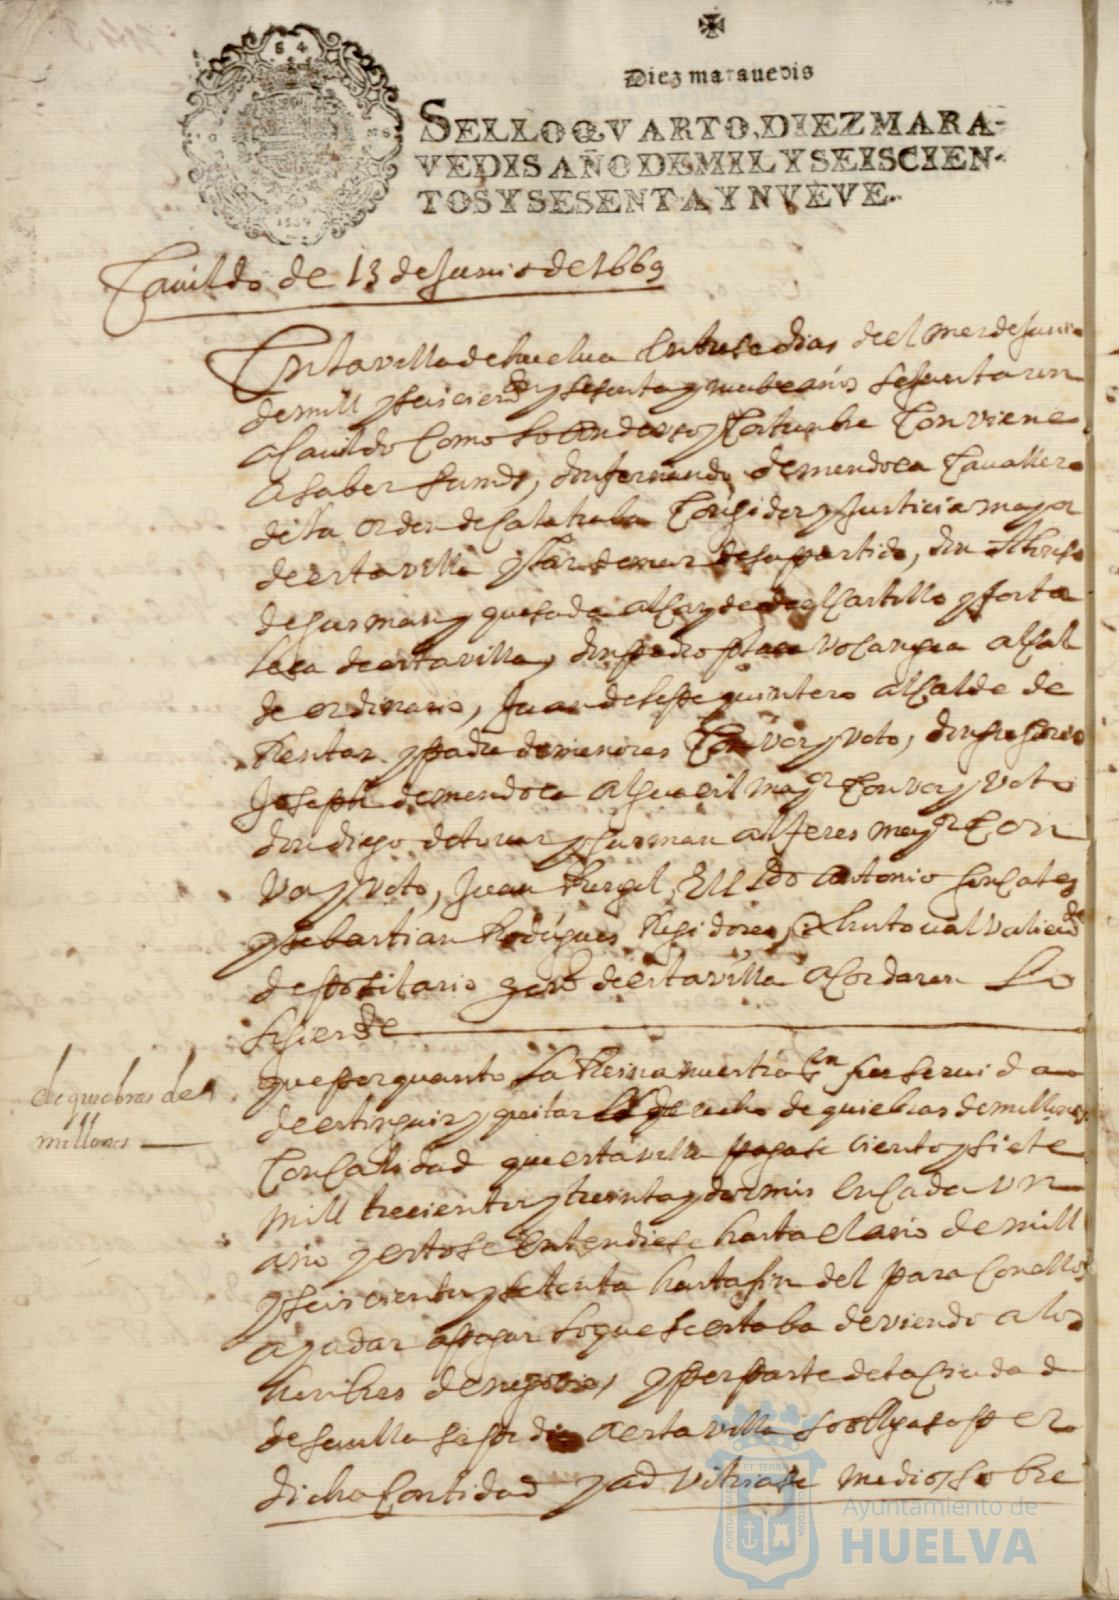 Diez maravedis
SELLO QVARTO, DIEZ MARA-
VEDIS AÑO DE MIL Y SEISCIEN-
TOS Y SESENTA Y NVEVE.
Cauildo de 13 de Junio de 1669
En la villa de huelua en trese dias del mes de Juni
de mill y seiscientos y sesenta y nuebe años se juntaron
a Cauildo Como lo an de uso y Costunbre Conviene
a saber sumd, don fernando de mendoca Cavallero
de la orden de Calatraba Corregidor y Justicia mayor
de esta villa y de su partido, don Alonso
de Gusman y quesada alcayde de el Castillo y forta
lesa de esta villa, don pedro alcal
de ordinario, Juan de lepe quintero alcalde de
Rentas y padre de menores Con vos y voto, don gregorio
Joseph de mendoca alguacil mayr Con vos y voto
don diego de tovar y Gusman alferes mayr Con
vos y voto, Juan Rergel, El Ldo antonio gonsales
y sebastian Rodrigues Regidores, christoval
depositario genl de esta villa acordaron Lo
siguiente
de quiebras de
millones
que por quanto la Reina nuestra sra fue seruida
de estinguir y quitar el derecho de quiebras de millones
Con Calidad que esta villa pagase ciento y siete
mill trecientos y treinta y dos mrs en Cada vn
año y esto se entendiese hasta el año de mill
y seiscientos y setenta hasta fin del para Con ellos
ayudar a pagar lo que se estaba deviendo a los
honbres de negocios, y por parte de la Ciudad
de seuilla se pidio a esta villa se obligase por
dicha Contidad y advitrase medios sobre
PORTUS MARIS ET TERRAE CUSTODIA
Ayuntamiento de
HUELVA